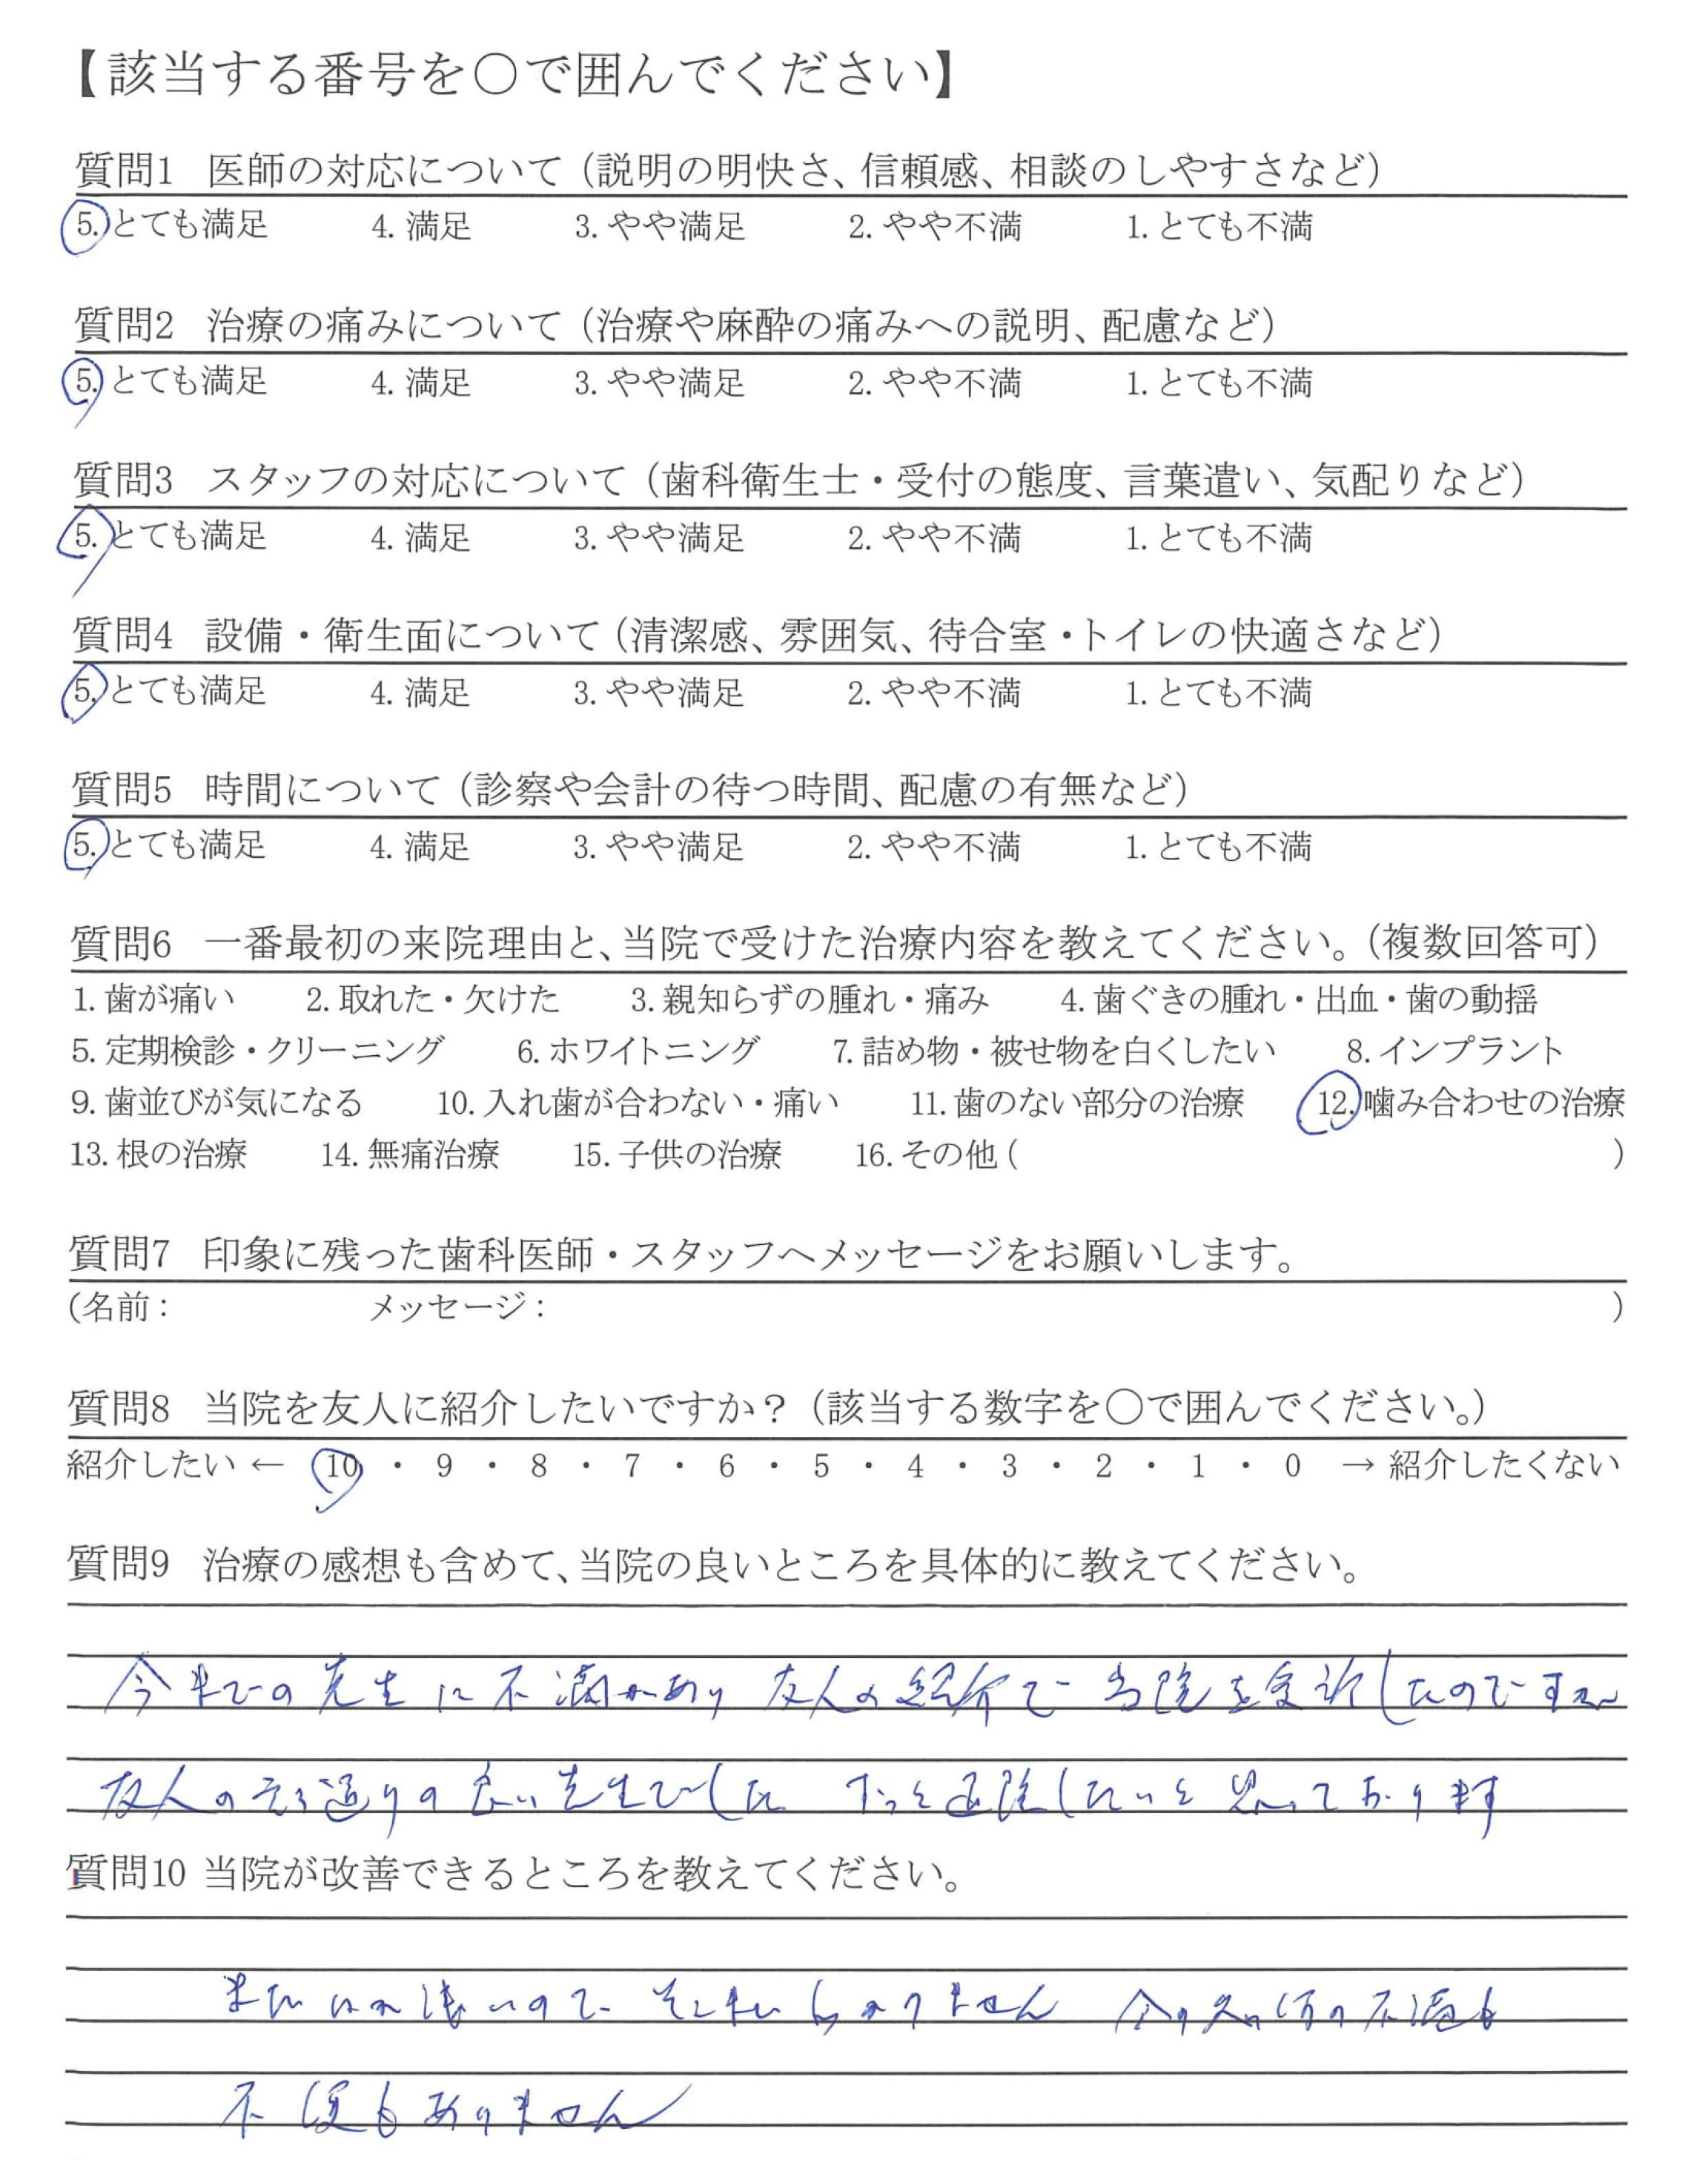 【該当する番号を〇で囲んでください】
質問1 医師の対応について（説明の明快さ、信頼感、相談のしやすさなど）
5. とても満足 4. 満足 3. やや満足 2. やや不満 1. とても不満
質問2 治療の痛みについて（治療や麻酔の痛みへの説明、配慮など）
5. とても満足 4. 満足 3. やや満足 2. やや不満 1. とても不満
質問3 スタッフの対応について（歯科衛生士・受付の態度、言葉遣い、気配りなど）
5. とても満足 4. 満足 3. やや満足 2. やや不満 1. とても不満
質問4 設備・衛生面について（清潔感、雰囲気、待合室・トイレの快適さなど）
5. とても満足 4. 満足 3. やや満足 2. やや不満 1. とても不満
質問5 時間について（診察や会計の待つ時間、配慮の有無など）
5. とても満足 4. 満足 3. やや満足 2. やや不満 1. とても不満
質問6 一番最初の来院理由と、当院で受けた治療内容を教えてください。（複数回答可）
1. 歯が痛い 2. 取れた・欠けた 3. 親知らずの腫れ・痛み 4. 歯ぐきの腫れ・出血・歯の動揺
5. 定期検診・クリーニング 6. ホワイトニング 7. 詰め物・被せ物を白くしたい 8. インプラント
9. 歯並びが気になる 10. 入れ歯が合わない・痛い 11. 歯のない部分の治療 12. 噛み合わせの治療
13. 根の治療 14. 無痛治療 15. 子供の治療 16. その他 ( )
質問7 印象に残った歯科医師・スタッフへメッセージをお願いします。
(名前： メッセージ： )
質問8 当院を友人に紹介したいですか？（該当する数字を〇で囲んでください。）
紹介したい ← 10 ・ 9 ・ 8 ・ 7 ・ 6 ・ 5 ・ 4 ・ 3 ・ 2 ・ 1 ・ 0 → 紹介したくない
質問9 治療の感想も含めて、当院の良いところを具体的に教えてください。
今までの先生に不満があり 友人の紹介で 当院を受診したのですが
友人の言う通りの良い先生でした ずっと通院したいと思っております
質問10 当院が改善できるところを教えてください。
まだ 浅いので そこまでわかりません 今の 何の不満も
不便もありません